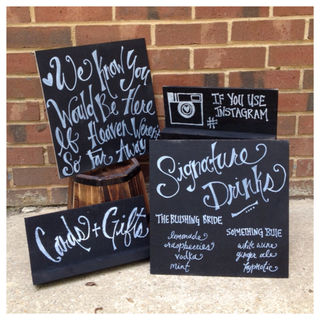 We Know You
Would Be Here
If Heaven Weren't
So Far Away
IF YOU USE
INSTAGRAM
#
Signature
Drinks
THE BLUSHING BRIDE
lemonade
raspberries
vodka
mint
SOMETHING BLUE
white wine
ginger ale
hypnotic
Cards + Gifts